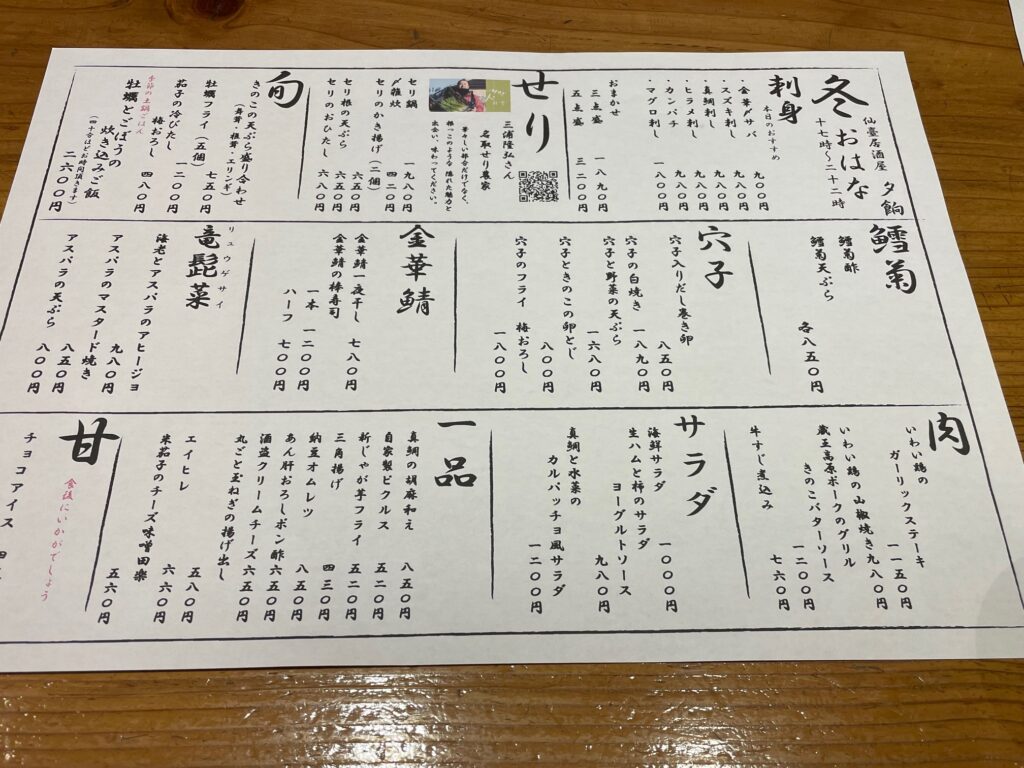 冬 おはな
仙臺居酒屋 夕餉
十七時~二十二時
刺身
本日のおすすめ
・金華〆サバ 九〇〇円
・スズキ刺し 九八〇円
・真鯛刺し 九八〇円
・ヒラメ刺し 九八〇円
・カンパチ 九八〇円
・マグロ刺し 一八〇〇円
おまかせ
三点盛 一八九〇円
五点盛 三二〇〇円
せり
三浦隆弘さん
名取せり農家
華々しい部分だけでなく、
根っこのような 隠れた魅力と
出会い、味わってください。
セリ鍋 一九八〇円
〆雑炊 四〇〇円
セリのかき揚げ(二個) 六五〇円
セリ根の天ぷら 六五〇円
セリのおひたし 六八〇円
旬
きのこの天ぷら盛り合わせ
(舞茸・椎茸・エリンギ) 七五〇円
牡蠣フライ(五個) 一二〇〇円
茄子の冷びたし 梅おろし 四八〇円
季節の土鍋ごはん
牡蠣とごぼうの
炊き込みご飯 二六〇〇円
(四十分ほどお時間頂きます)
鱈菊
鱈菊酢
鱈菊天ぷら
各八五〇円
穴子
穴子入りだし巻き卵 八五〇円
穴子の白焼き 一八九〇円
穴子と野菜の天ぷら 一六八〇円
穴子ときのこの卵とじ 八〇〇円
穴子のフライ 梅おろし 一八〇〇円
金華鯖
金華鯖一夜干し 七八〇円
金華鯖の棒寿司
一本 一二〇〇円
ハーフ 七〇〇円
竜髭菜
リュウゲサイ
海老とアスパラのアヒージョ 九八〇円
アスパラのマスタード焼き 八五〇円
アスパラの天ぷら 八〇〇円
肉
いわい鶏の
ガーリックステーキ 一一五〇円
いわい鶏の山椒焼き 九八〇円
蔵王高原ポークのグリル
きのこバターソース 一二〇〇円
牛すじ煮込み 七六〇円
サラダ
海鮮サラダ 一〇〇〇円
生ハムと柿のサラダ
ヨーグルトソース 九八〇円
真鯛と水菜の
カルパッチョ風サラダ 一二〇〇円
一品
真鯛の胡麻和え 八五〇円
自家製ピクルス 五二〇円
新じゃが芋フライ 五二〇円
三角揚げ 四三〇円
納豆オムレツ 八五〇円
あん肝おろしポン酢 六五〇円
酒盗クリームチーズ 六五〇円
丸ごと玉ねぎの揚げ出し 六五〇円
エイヒレ 五八〇円
米茄子のチーズ味噌田楽 六六〇円
五六〇円
甘
食後にいかがでしょう
チョコアイス